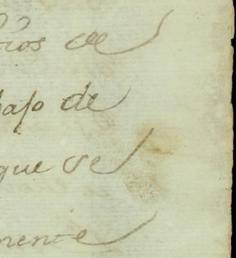 ños de
bajo de
que se
mente